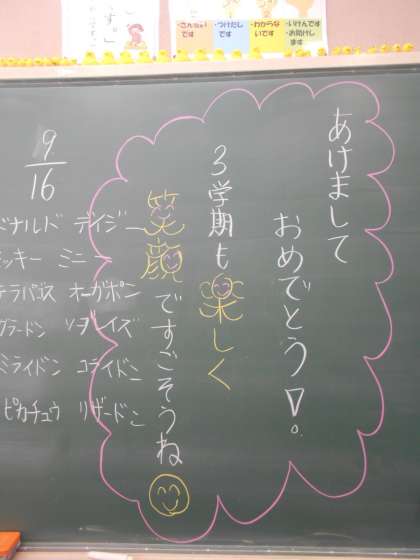 ・さんせいです
・つけたしです
・わからないです
・いけんです
・お助けします
あけまして
おめでとう!
3学期も楽しく
笑顔ですごそうね
9/16
ドナルド デイジー
ッキー ミニー
テラパゴス オーガポン
グラードン ソブレイズ
ミライドン コライドン
ピカチュウ リザードン